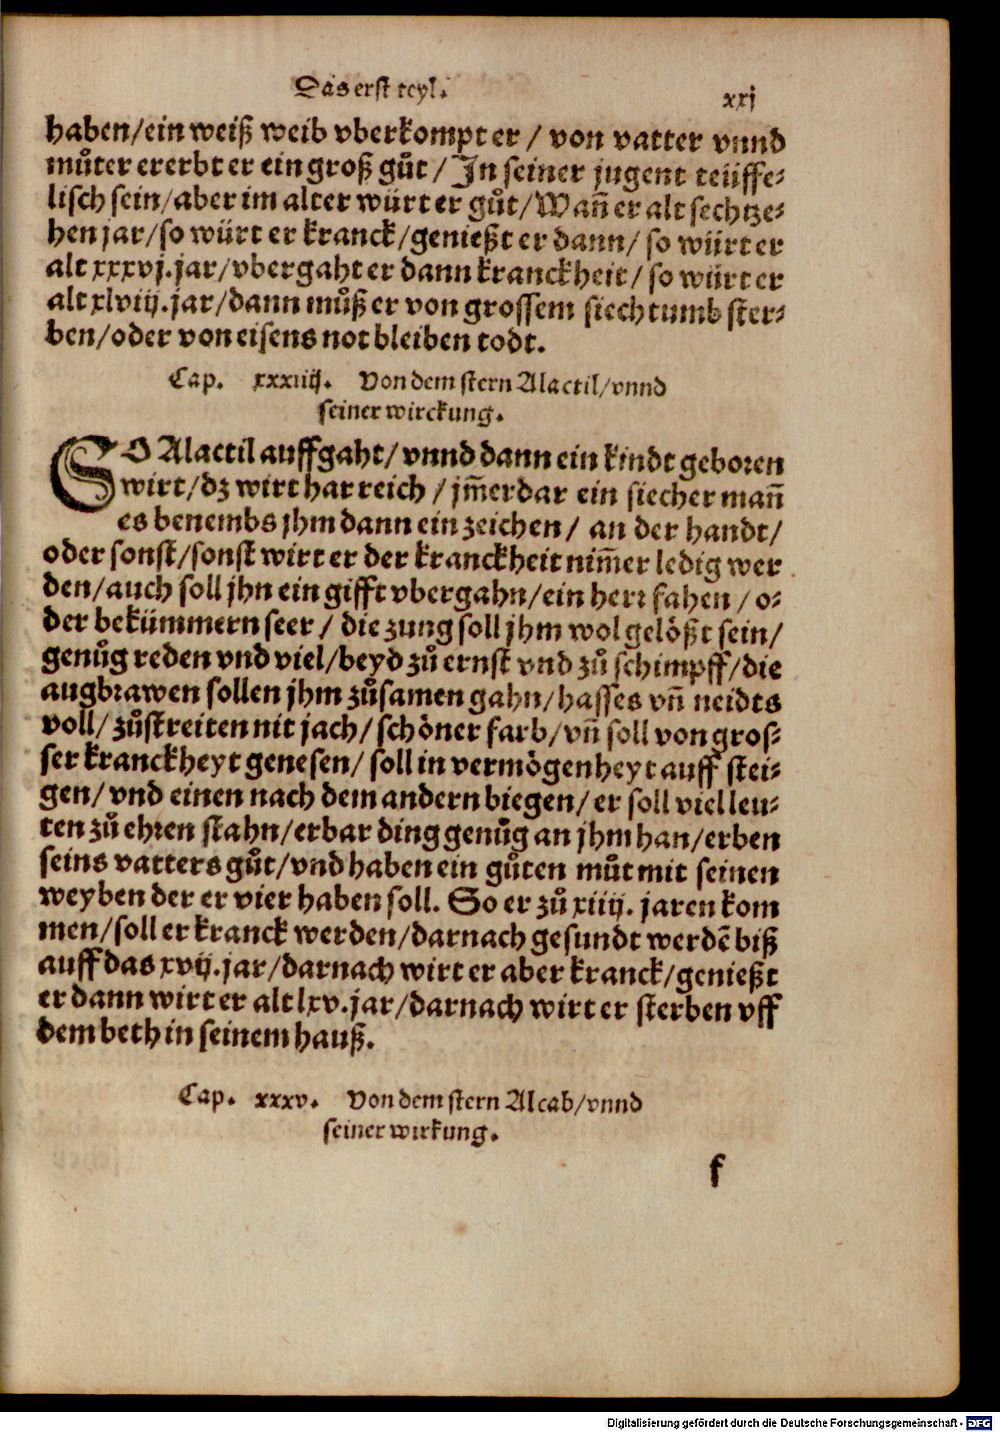 Das erst teyl.
xxj
haben/ein weiß weib vberkompt er / von vatter vnnd
můter ererbt er ein groß gůt / In seiner jugent teüffe-
lisch sein/aber im alter würt er gůt/Wañ er alt sechtze-
hen jar/so würt er kranck/genießt er dann/ so würt er
alt xxxvj.jar/vbergaht er dann kranckheit/ so würt er
alt xlviij.jar/dann můß er von grossem siechtumb ster-
ben/oder von eisens not bleiben todt.
Cap. xxxiiij. Von dem stern Alactil/vnnd
seiner wirckung.
SO Alactil auffgaht/ vnnd dann ein kindt geboren
wirt/dz wirt har reich / jm̃erdar ein siecher mañ
es benembs jhm dann ein zeichen/ an der handt/
oder sonst/sonst wirt er der kranckheit nim̃er ledig wer
den/auch soll jhn ein gifft vbergahn/ein herr fahen / o-
der bekümmern seer / die zung soll jhm wol gelößt sein/
genůg reden vnd viel/beyd zů ernst vnd zů schimpff/die
augbrawen sollen jhm zůsamen gahn/hasses vñ neidts
voll/ zůstreiten nit jach/ schöner farb/vñ soll von gros-
ser kranckheyt genesen/ soll in vermögenheyt auff stei-
gen/ vnd einen nach dem andern biegen/ er soll viel leu-
ten zů ehren stahn/erbar ding genůg an jhm han/erben
seins vatters gůt/vnd haben ein gůten můt mit seinen
weyben der er vier haben soll. So er zů xiiij. jaren kom
men/soll er kranck werden/darnach gesundt werdẽ biß
auff das xvij.jar/darnach wirt er aber kranck/genießt
er dann wirt er alt lxv.jar/darnach wirt er sterben vff
dem beth in seinem hauß.
Cap. xxxv. Von dem stern Alcab/vnnd
seiner wirkung.
f
Digitalisierung gefördert durch die Deutsche Forschungsgemeinschaft - DFG